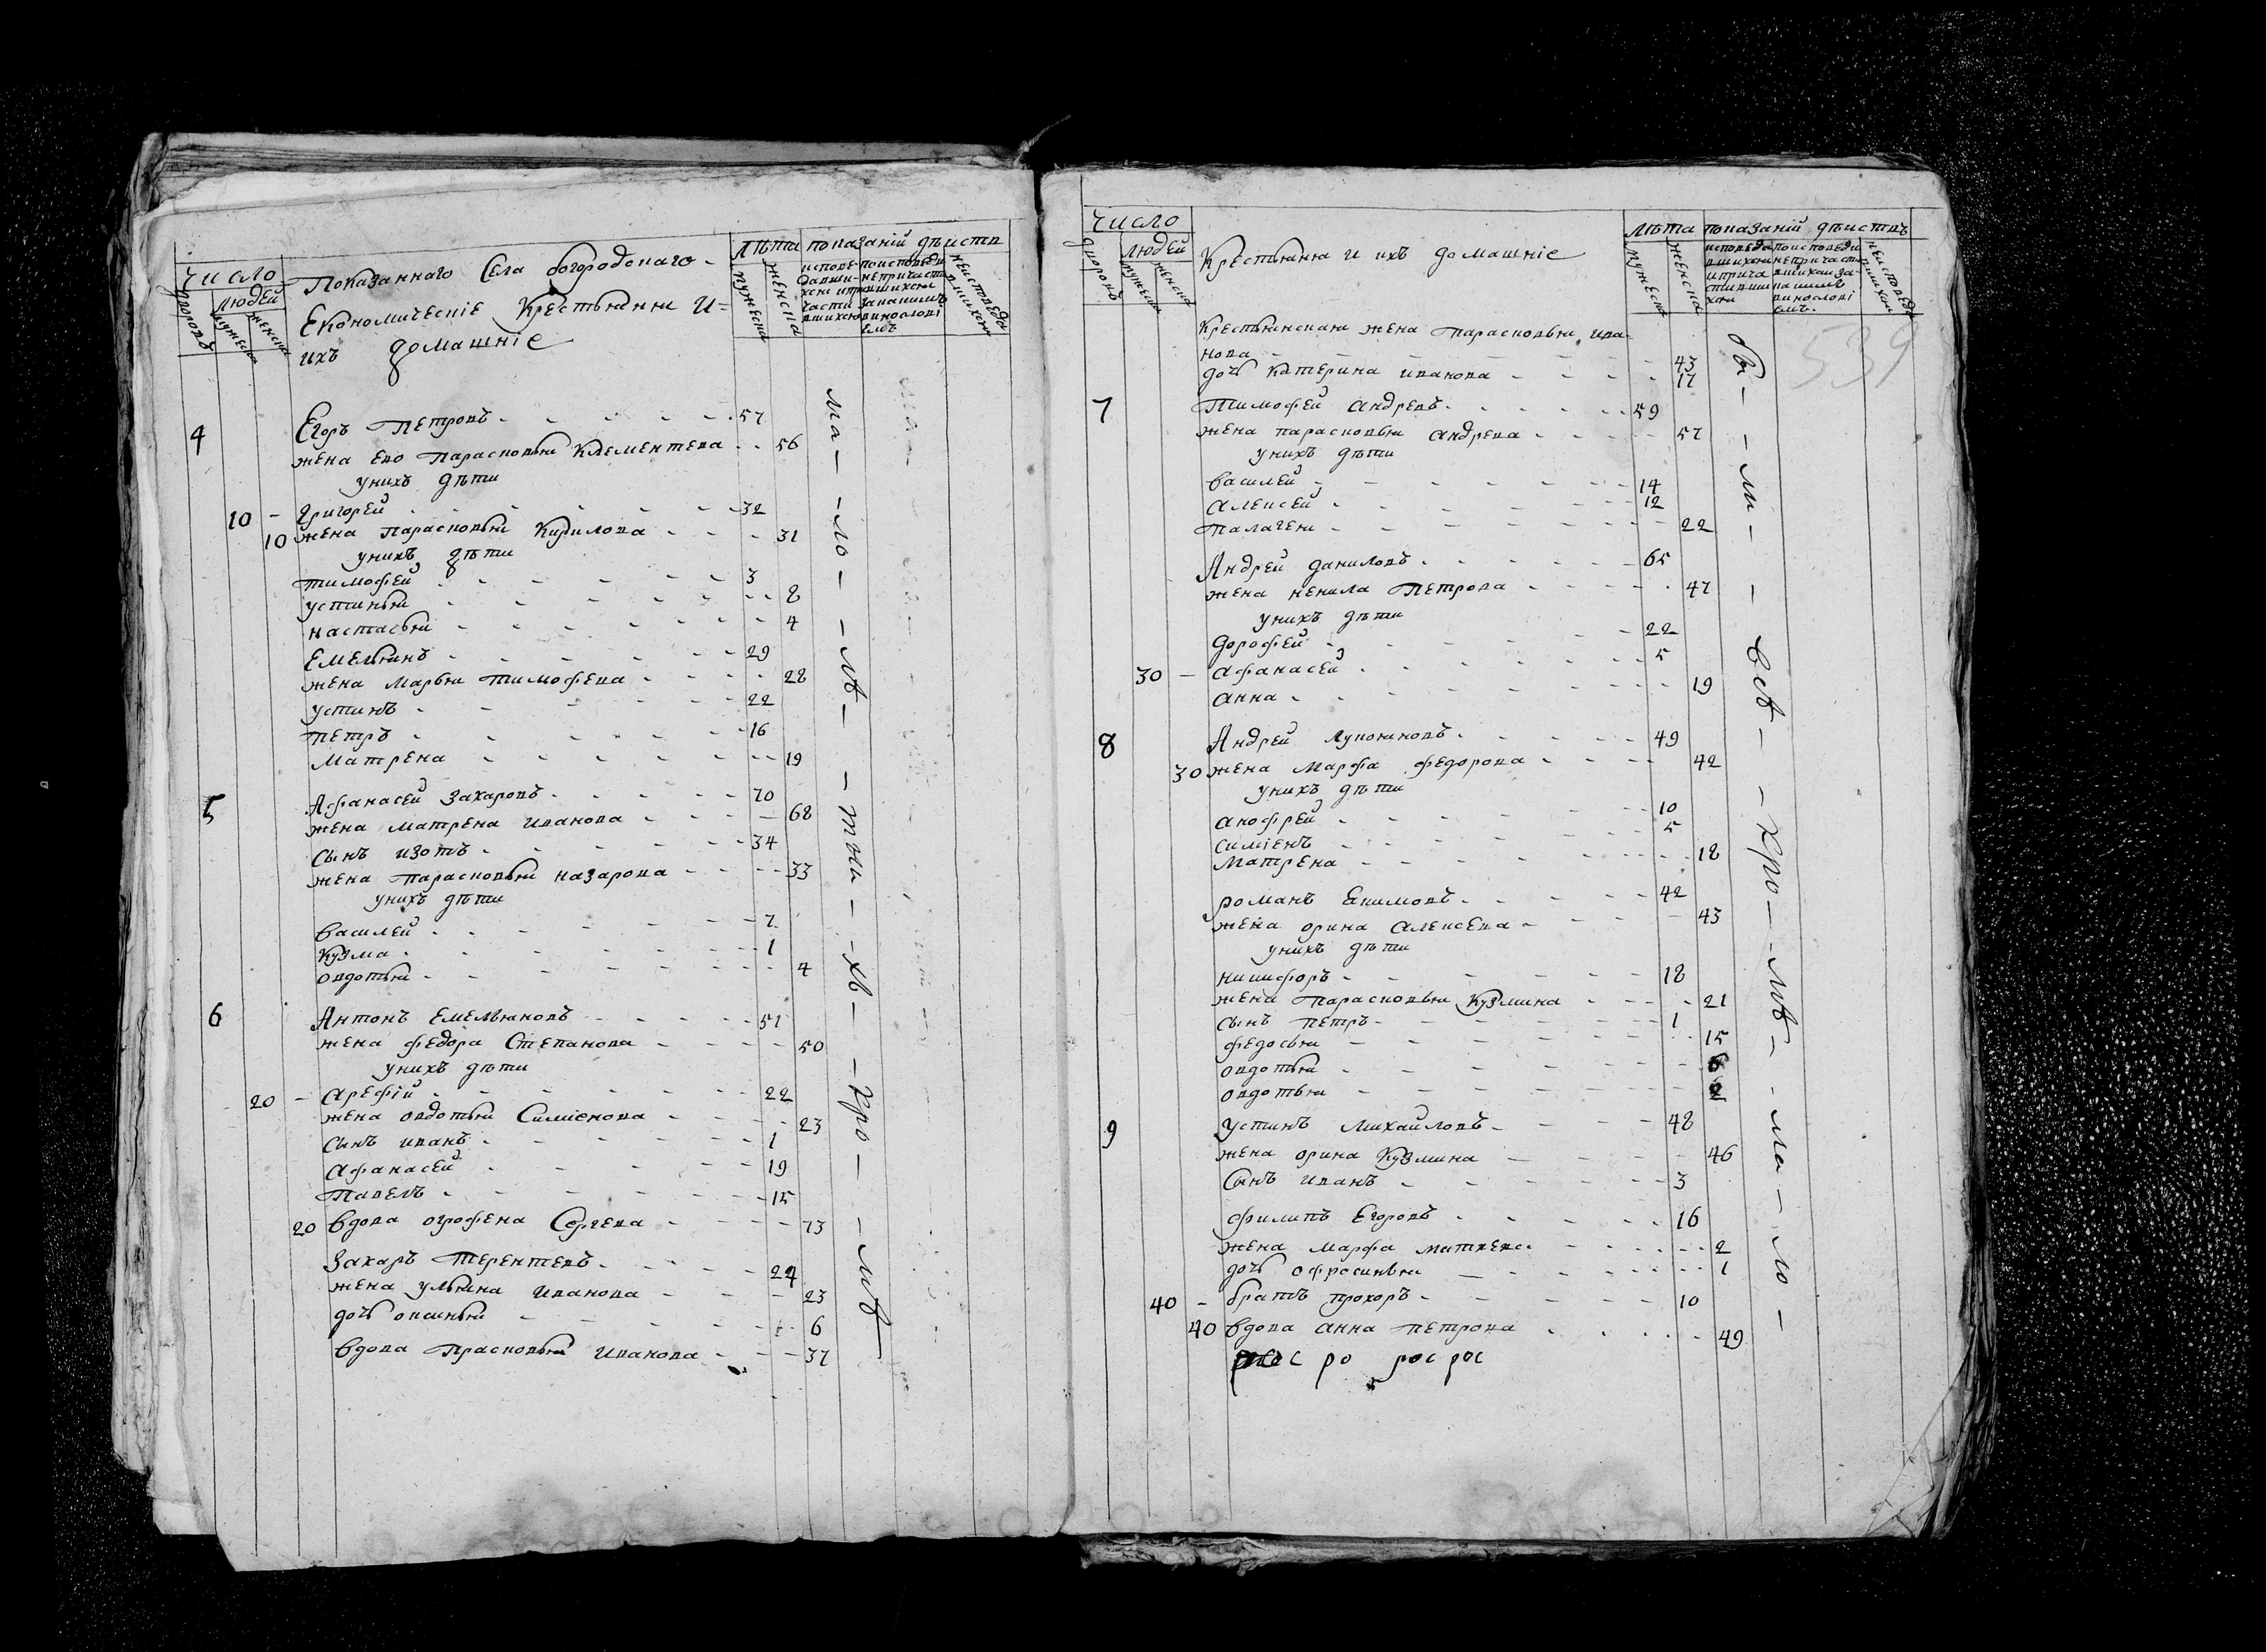 число
людей
дворовъ
мужеска
женска
Показаннаго Села богородскаго -
Економическіе Крестьяня И=
ихъ домашніе
лѣта
мужеска
женска
показаній дѣиств
испове-
давши-
хся и при
части
вшихся
поисповеди
непричасти
вшихся
за какимъ
винослові
емъ
неисповеда
вшихся
4 Егоръ Петровъ - 57
жена ево Парасковья Клементева - 56
унихъ дѣти
10 - григорей - 32
10 жена Парасковья Кирилова - 31
унихъ дѣти
тимофей - 3
устинья - 8
настасья - 4
Емельянъ - 29
жена Марья тимофева - 28
устинъ - 22
петръ - 16
Матрена - 19
5 Афанасей Захаровъ - 70
жена матрена иванова - 68
сынъ изотъ - 34
жена парасковья назарова - 33
унихъ дѣти
василей - 7
кузма - 1
овдотья - 4
6 Антонъ Емельяновъ - 51
жена федора Степанова - 50
унихъ дѣти
20 - арефій - 22
жена овдотья Симіенова - 23
сынъ иванъ - 1
афанасей - 19
павелъ - 15
20 вдова огрофена Сергева - 73
Захаръ терентевъ - 24
жена ульяна иванова - 23
дочь оксинья - 6
вдова Прасковья иванова - 37
ма - ло - лѣ - тни - хъ - Хро - лиѣ
число
людей
дворовъ
мужеска
женска
Крестьяня и ихъ домашніе
лѣта
мужеска
женска
показаній дѣиствъ
исповеда
вшихся
и прича
стивши
хся
поисповеди
непричаст
вшихся за
какимъ
винослові
емъ.
неисповеда
вшихся
539
Крестьянская жена парасковья ива-
нова - 43
дочь катерина иванова - 17
7 Тимофей андревъ - 59
жена парасковья андрева - 57
унихъ дѣти
василей - 14
алексей - 12
палагея - 22
Андрей даниловъ - 65
жена ненила Петрова - 47
унихъ дѣти
дорофей - 22
30 - афанасей - 5
анна - 19
8 Андрей лукояновъ - 49
30 жена марфа федорова - 42
унихъ дѣти
анофрей - 10
симіенъ - 5
матрена - 18
романъ Екимовъ - 42
жена орина алексева - 43
унихъ дѣти
никифоръ - 18
жена парасковья кузмина - 21
сынъ петръ - 1
федосья - 15
овдотья - 6
овдотья - 2
9 устинъ михайловъ - 48
жена орина кузмина - 46
сынъ иванъ - 3
филипъ Егоровъ - 16
жена марфа матвева - 2
дочь офросинья - 1
40 - братъ прохоръ - 10
40 вдова анна петрова - 49
рос ро рос рос